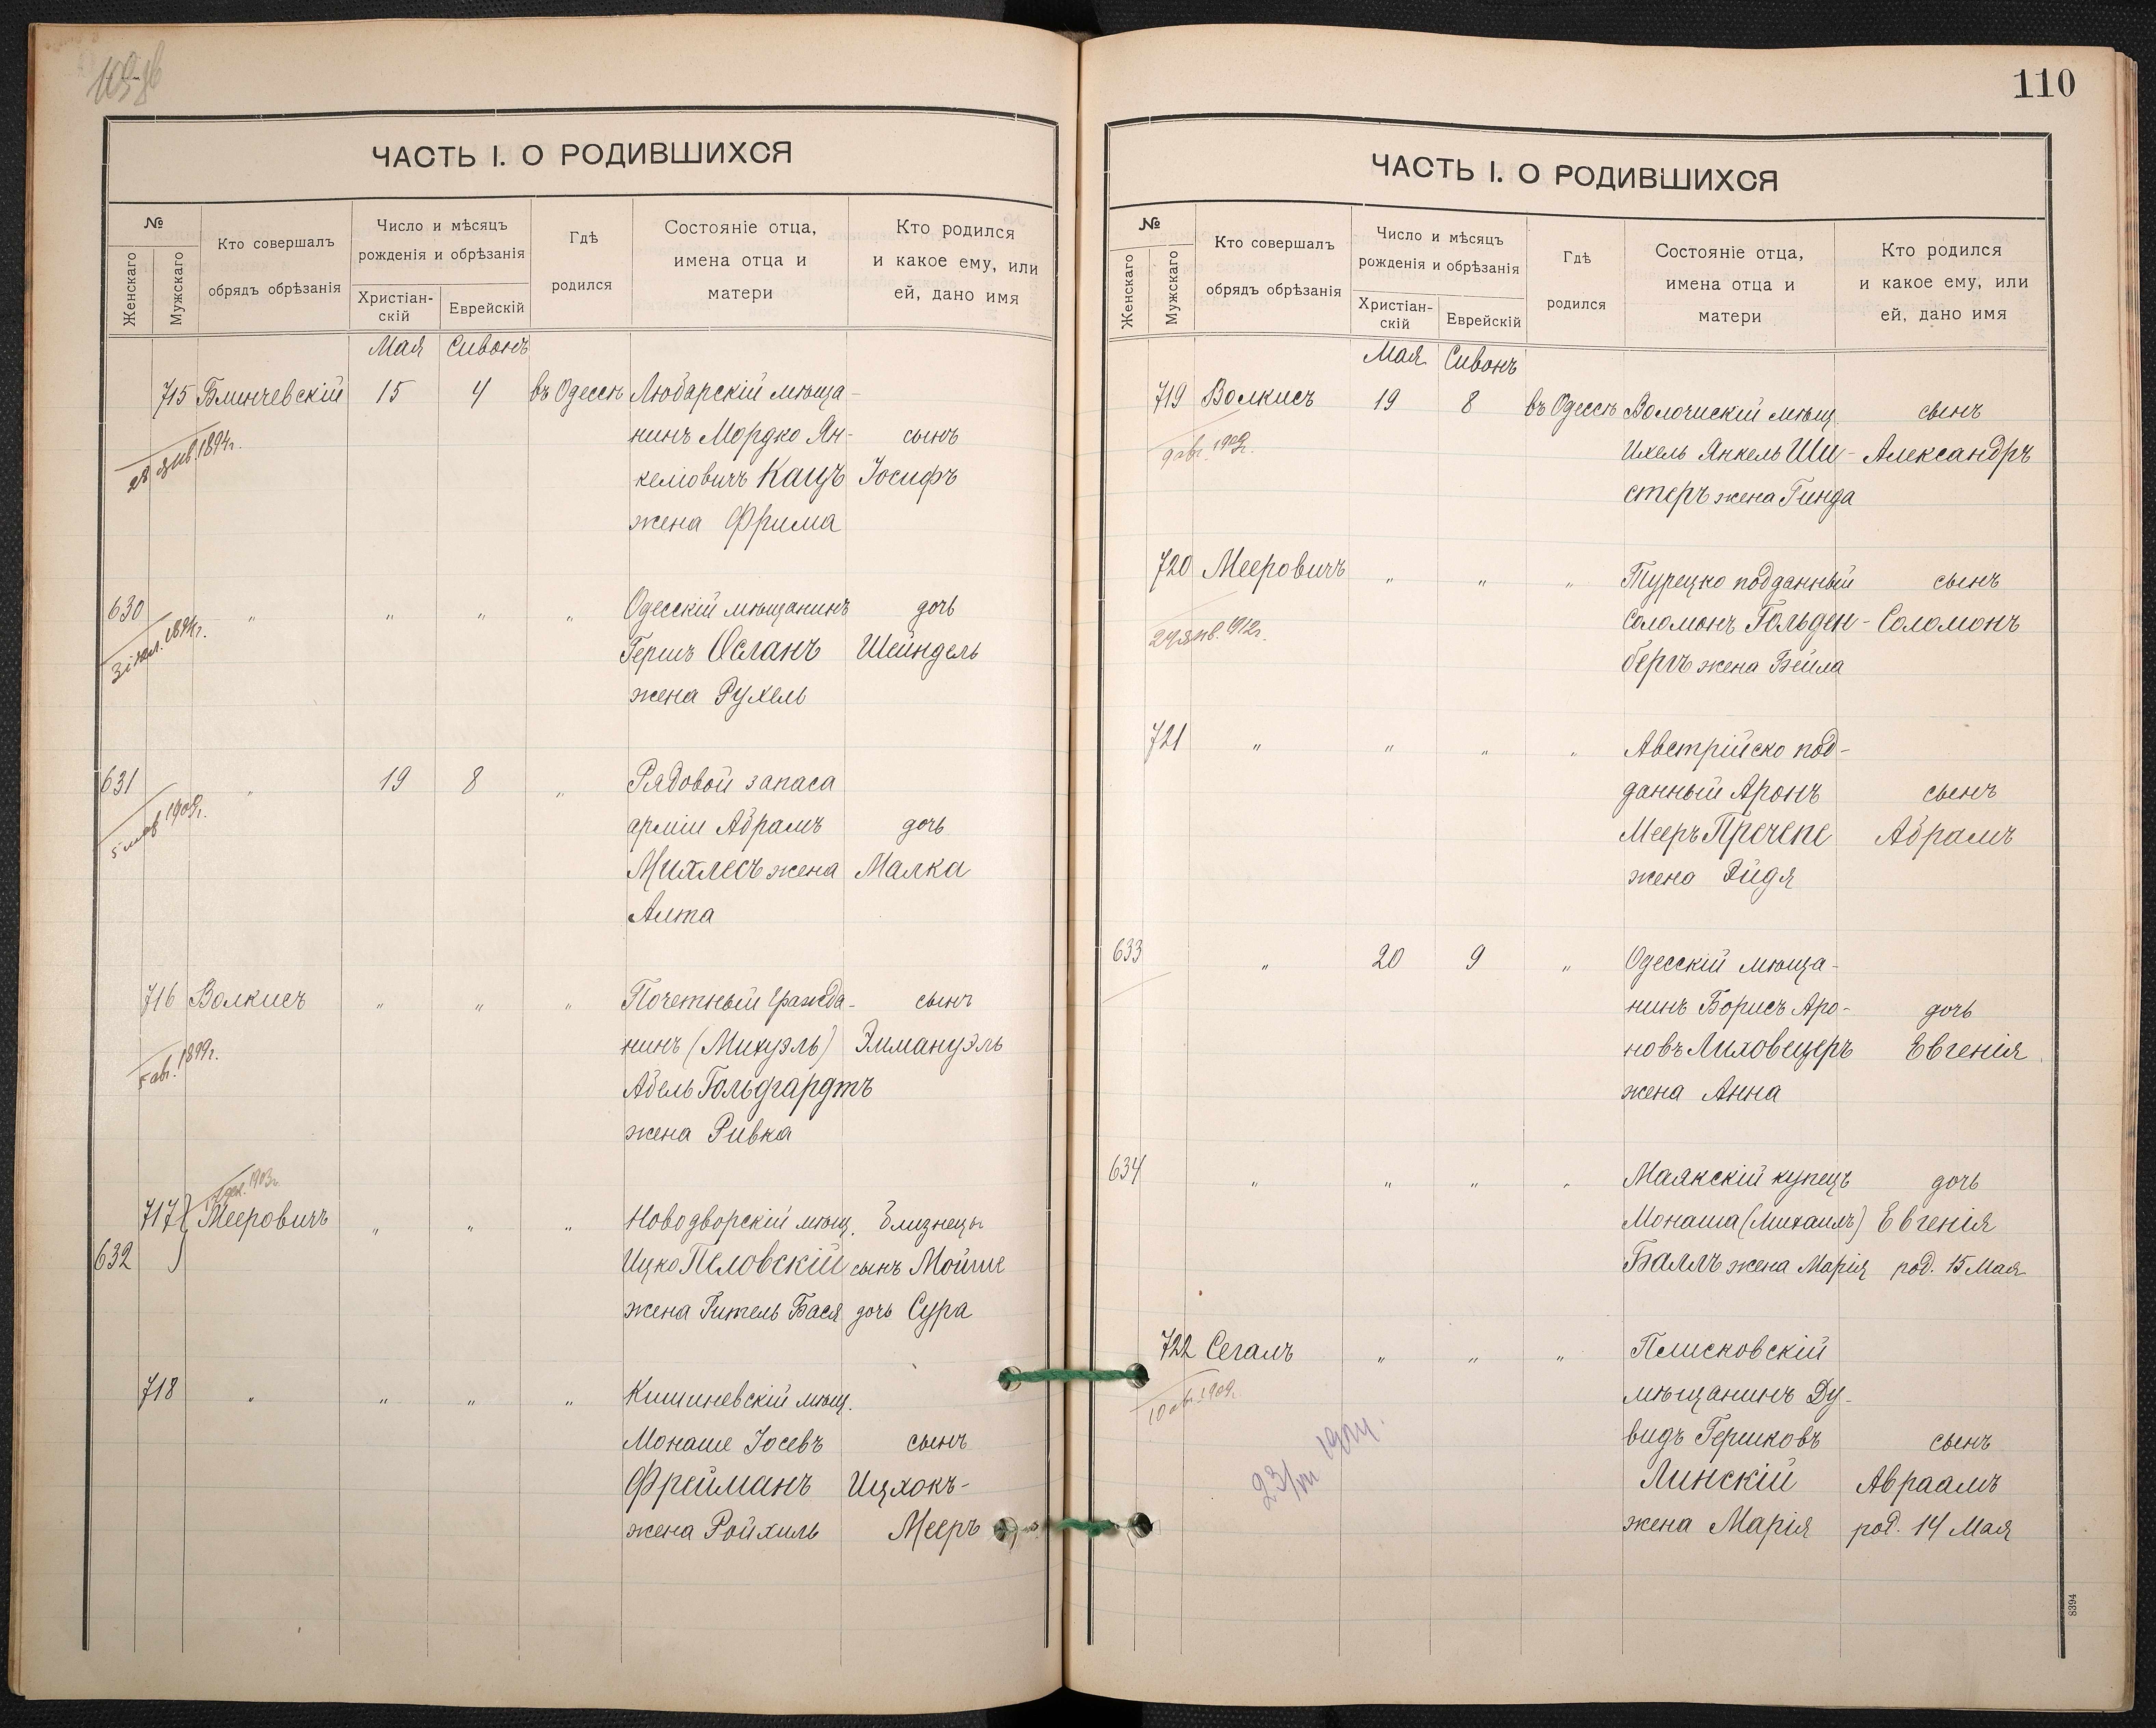 ЧАСТЬ I. О РОДИВШИХСЯ
№
Женскаго
Мужскаго
Кто совершалъ
обрядъ обрѣзанія
Число и мѣсяцъ
рожденія и обрѣзанія
Христіан-
скій
Еврейскій
Гдѣ
родился
Состояніе отца,
имена отца и
матери
Кто родился
и какое ему, или
ей, дано имя
Мая Сивонъ
715 Блинчевскій 15 4 въ Одессѣ Любарскій мѣща-
нинъ Мордко Ян- сынъ
келіовичъ Кацъ Іосифъ
жена Фрима
28 янв. 1894г.
630 " " " " Одесскій мѣщанинъ дочь
Гершъ Осланъ Шейндель
жена Рухель
631 " 19 8 " Рядовой запаса
арміи Абрамъ дочь
Михлесъ жена Малка
Алта
716 Волкисъ " " " Почетный гражда- сынъ
нинъ (Михуэль) Эммануэль
Абель Гольдгардтъ
жена Ривка
5 авг. 1899г.
717 Мееровичъ " " " Новодворскій мѣщ. близнецы
632 Ицко Пеловскій сынъ Мойше
жена Гитель Бася дочь Сура
718 " " " " Кишиневскій мѣщ.
Монаше Іосевъ сынъ
Фрейманъ Ицхокъ-
жена Ройхиль Мееръ
110
ЧАСТЬ I. О РОДИВШИХСЯ
№
Женскаго
Мужскаго
Кто совершалъ
обрядъ обрѣзанія
Число и мѣсяцъ
рожденія и обрѣзанія
Христіан-
скій
Еврейскій
Гдѣ
родился
Состояніе отца,
имена отца и
матери
Кто родился
и какое ему, или
ей, дано имя
Мая Сивонъ
719 Волкисъ 19 8 въ Одессѣ Волочискій мѣщ. сынъ
Ихель Янкель Ши- Александръ
стеръ жена Гинда
720 Мееровичъ " " " Турецко подданный сынъ
Соломонъ Гольден- Соломонъ
бергъ жена Бейла
29 янв. 912г.
721 " " " " Австрійско под-
данный Аронъ сынъ
Мееръ Пречепе Абрамъ
жена Эйдя
633 " 20 9 " Одесскій мѣща-
нинъ Борисъ Аро- дочь
новъ Лиховецеръ Евгенія
жена Анна
634 " " " " Маякскій купецъ дочь
Монаша (Михаилъ) Евгенія
Баллъ жена Марія род. 15 Мая
722 Сегалъ " " " Плисковскій
мѣщанинъ Ду-
видъ Гершковъ сынъ
Линскій Авраамъ
жена Марія род. 14 Мая
10 авг. 1909г.
8394